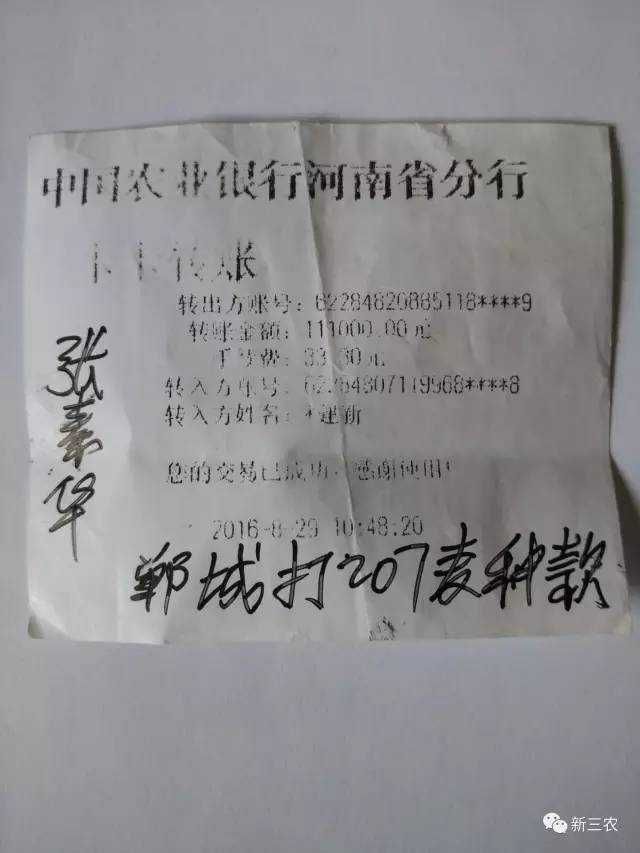 中国农业银行河南省分行
卡卡转账
转出方账号：62284820885118****9
转账金额：111000.00元
手续费：33.30元
转入方账号：62284807119968****8
转入方姓名：*建新
您的交易已成功，感谢使用！
2016-8-29 10:48:20
张素华
郸城打207麦种款
新三农